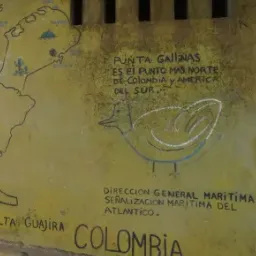 PUNTA GALLINAS
ES EL PUNTO MAS NORTE
DE COLOMBIA Y AMERICA
DEL SUR.
DIRECCION GENERAL MARITIMA
SEÑALIZACION MARITIMA DEL
ATLANTICO.
ALTA GUAJIRA
COLOMBIA